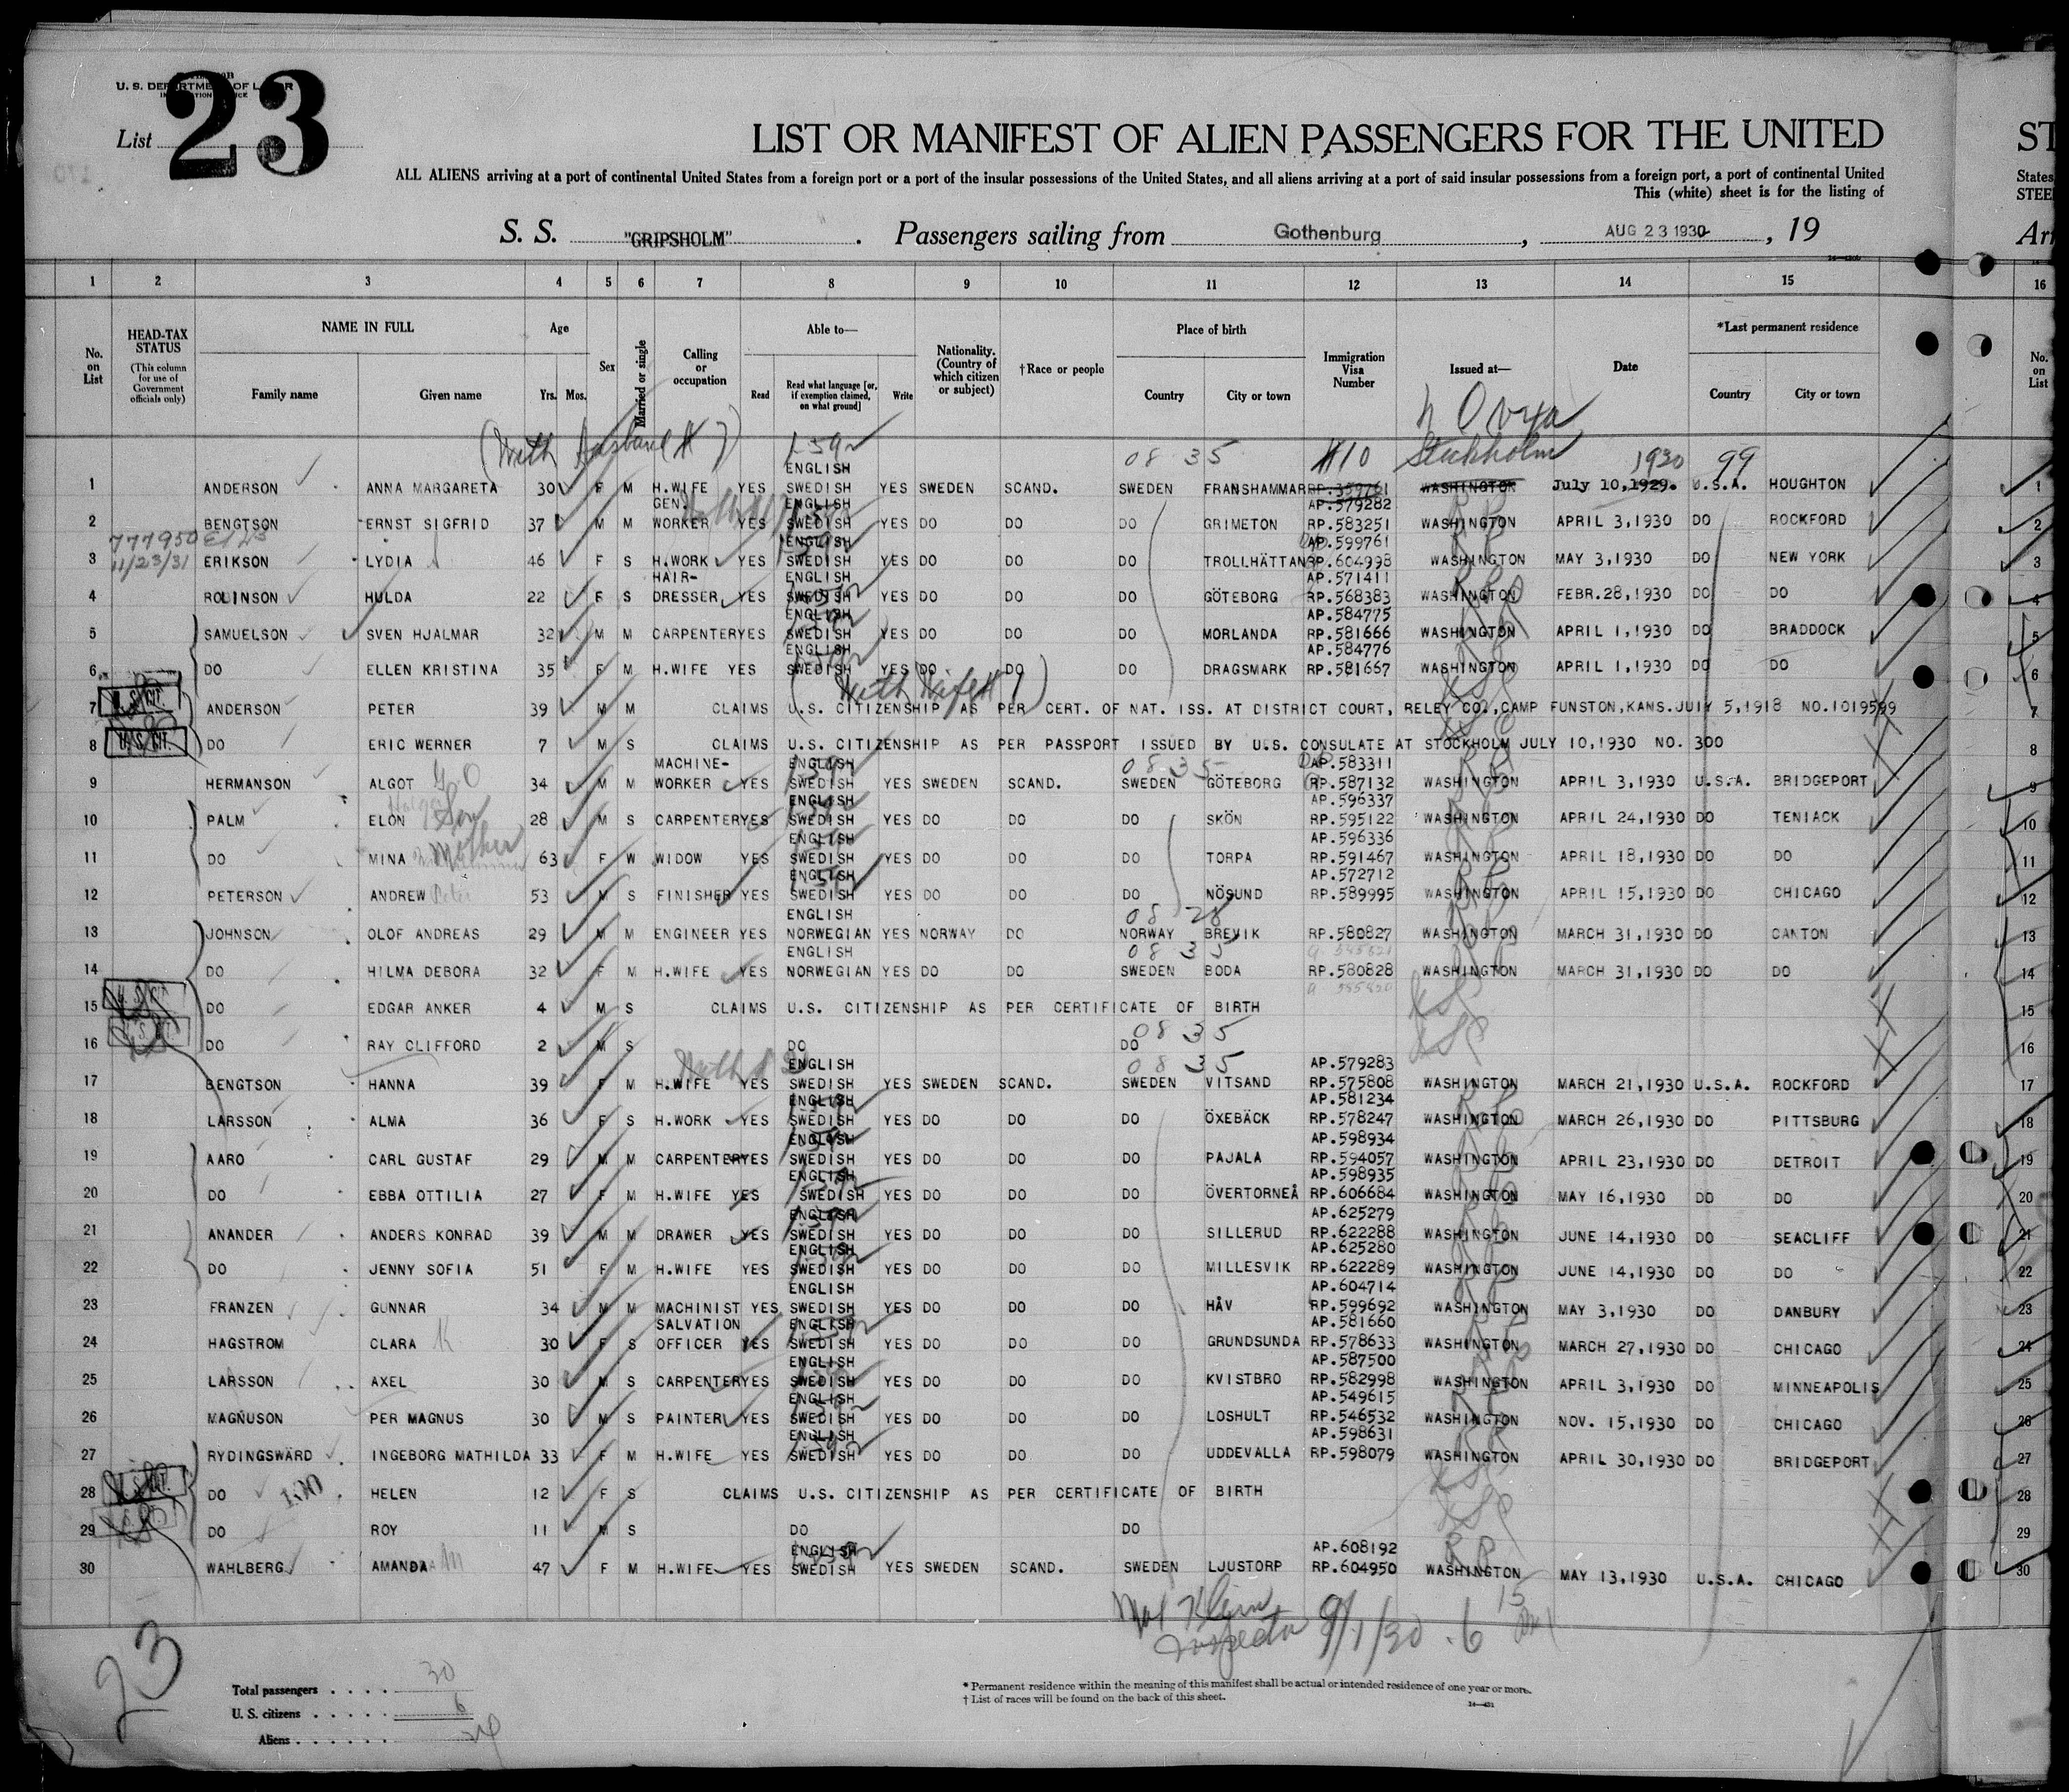 U. S. DEPARTMENT OF LABOR
List 23
LIST OR MANIFEST OF ALIEN PASSENGERS FOR THE UNITED ST
ALL ALIENS arriving at a port of continental United States from a foreign port or a port of the insular possessions of the United States, and all aliens arriving at a port of said insular possessions from a foreign port, a port of continental United States
This (white) sheet is for the listing of STEE
S. S. "GRIPSHOLM" . Passengers sailing from Gothenburg, AUG 23 1930, 19 Arr
1 2 3 4 5 6 7 8 9 10 11 12 13 14 15 16
No. on List
HEAD-TAX STATUS (This column for use of Government officials only)
NAME IN FULL Family name Given name
Age Yrs. Mos.
Sex
Married or single
Calling or occupation
Able to— Read Read what language [or, if exemption claimed, on what ground] Write
Nationality. (Country of which citizen or subject)
†Race or people
Place of birth Country City or town
Immigration Visa Number
Issued at—
Date
*Last permanent residence Country City or town
No. on List
(With husband # 7) 08 35 #10 Stockholm 1930 99
1 ANDERSON ANNA MARGARETA 30 F M H.WIFE YES ENGLISH SWEDISH YES SWEDEN SCAND. SWEDEN FRANSHAMMAR WASHINGTON July 10,1929. U.S.A. HOUGHTON 1
2 BENGTSON ERNST SIGFRID 37 M M GEN. WORKER YES ENGLISH SWEDISH YES DO DO DO GRIMETON AP.579282 RP.583251 WASHINGTON APRIL 3,1930 DO ROCKFORD 2
777950
11/23/31
3 ERIKSON LYDIA 46 F S H.WORK YES ENGLISH SWEDISH YES DO DO DO TROLLHÄTTAN AP.599761 RP.604998 WASHINGTON MAY 3,1930 DO NEW YORK 3
4 ROLINSON HULDA 22 F S HAIR-DRESSER YES ENGLISH SWEDISH YES DO DO DO GÖTEBORG AP.571411 RP.568383 WASHINGTON FEBR.28,1930 DO DO 4
5 SAMUELSON SVEN HJALMAR 32 M M CARPENTER YES ENGLISH SWEDISH YES DO DO DO MORLANDA AP.584775 RP.581666 WASHINGTON APRIL 1,1930 DO BRADDOCK 5
6 DO ELLEN KRISTINA 35 F M H.WIFE YES ENGLISH SWEDISH YES DO DO DO DRAGSMARK AP.584776 RP.581667 WASHINGTON APRIL 1,1930 DO DO 6
(With Wife # 1)
U.S. CIT.
7 ANDERSON PETER 39 M M CLAIMS U.S. CITIZENSHIP AS PER CERT. OF NAT. ISS. AT DISTRICT COURT, RELEY CO.,CAMP FUNSTON,KANS.JULY 5,1918 NO.1019599 7
U.S. CIT.
8 DO ERIC WERNER 7 M S CLAIMS U.S. CITIZENSHIP AS PER PASSPORT ISSUED BY U.S. CONSULATE AT STOCKHOLM JULY 10,1930 NO. 300 8
08 35
9 HERMANSON ALGOT 34 M M MACHINE-WORKER YES ENGLISH SWEDISH YES SWEDEN SCAND. SWEDEN GÖTEBORG AP.583311 RP.587132 WASHINGTON APRIL 3,1930 U.S.A. BRIDGEPORT 9
10 PALM ELON Son 28 M S CARPENTER YES ENGLISH SWEDISH YES DO DO DO SKÖN AP.596337 RP.595122 WASHINGTON APRIL 24,1930 DO TENIACK 10
11 DO MINA Mother 63 F W WIDOW YES ENGLISH SWEDISH YES DO DO DO TORPA AP.596336 RP.591467 WASHINGTON APRIL 18,1930 DO DO 11
12 PETERSON ANDREW Peter 53 M S FINISHER YES ENGLISH SWEDISH YES DO DO DO NÖSUND AP.572712 RP.589995 WASHINGTON APRIL 15,1930 DO CHICAGO 12
08 28
13 JOHNSON OLOF ANDREAS 29 M M ENGINEER YES ENGLISH NORWEGIAN YES NORWAY DO NORWAY BREVIK RP.580827 WASHINGTON MARCH 31,1930 DO CANTON 13
08 35
14 DO HILMA DEBORA 32 F M H.WIFE YES ENGLISH NORWEGIAN YES DO DO SWEDEN BODA RP.580828 WASHINGTON MARCH 31,1930 DO DO 14
15 DO EDGAR ANKER 4 M S CLAIMS U.S. CITIZENSHIP AS PER CERTIFICATE OF BIRTH 15
08 35
16 DO RAY CLIFFORD 2 M S DO DO 16
08 35
17 BENGTSON HANNA 39 F M H.WIFE YES ENGLISH SWEDISH YES SWEDEN SCAND. SWEDEN VITSAND AP.579283 RP.575808 WASHINGTON MARCH 21,1930 U.S.A. ROCKFORD 17
18 LARSSON ALMA 36 F S H.WORK YES ENGLISH SWEDISH YES DO DO DO ÖXEBÄCK AP.581234 RP.578247 WASHINGTON MARCH 26,1930 DO PITTSBURG 18
19 AARO CARL GUSTAF 29 M M CARPENTER YES ENGLISH SWEDISH YES DO DO DO PAJALA AP.598934 RP.594057 WASHINGTON APRIL 23,1930 DO DETROIT 19
20 DO EBBA OTTILIA 27 F M H.WIFE YES ENGLISH SWEDISH YES DO DO DO ÖVERTORNEÅ AP.598935 RP.606684 WASHINGTON MAY 16,1930 DO DO 20
21 ANANDER ANDERS KONRAD 39 M M DRAWER YES ENGLISH SWEDISH YES DO DO DO SILLERUD AP.625279 RP.622288 WASHINGTON JUNE 14,1930 DO SEACLIFF 21
22 DO JENNY SOFIA 51 F M H.WIFE YES ENGLISH SWEDISH YES DO DO DO MILLESVIK AP.625280 RP.622289 WASHINGTON JUNE 14,1930 DO DO 22
23 FRANZEN GUNNAR 34 M M MACHINIST YES ENGLISH SWEDISH YES DO DO DO HÅV AP.604714 RP.599692 WASHINGTON MAY 3,1930 DO DANBURY 23
24 HAGSTROM CLARA K 30 F S SALVATION OFFICER YES ENGLISH SWEDISH YES DO DO DO GRUNDSUNDA AP.581660 RP.578633 WASHINGTON MARCH 27,1930 DO CHICAGO 24
25 LARSSON AXEL 30 M S CARPENTER YES ENGLISH SWEDISH YES DO DO DO KVISTBRO AP.587500 RP.582998 WASHINGTON APRIL 3,1930 DO MINNEAPOLIS 25
26 MAGNUSON PER MAGNUS 30 M S PAINTER YES ENGLISH SWEDISH YES DO DO DO LOSHULT AP.549615 RP.546532 WASHINGTON NOV. 15,1930 DO CHICAGO 26
27 RYDINGSWÄRD INGEBORG MATHILDA 33 F M H.WIFE YES ENGLISH SWEDISH YES DO DO DO UDDEVALLA AP.598631 RP.598079 WASHINGTON APRIL 30,1930 DO BRIDGEPORT 27
28 DO HELEN 12 F S CLAIMS U.S. CITIZENSHIP AS PER CERTIFICATE OF BIRTH 28
29 DO ROY 11 M S DO DO 29
30 WAHLBERG AMANDA M 47 F M H.WIFE YES ENGLISH SWEDISH YES SWEDEN SCAND. SWEDEN LJUSTORP AP.608192 RP.604950 WASHINGTON MAY 13,1930 U.S.A. CHICAGO 30
Klein
Inspector 9/1/30 .6 15
23
Total passengers . . . . 30
U. S. citizens . . . . . 6
Aliens . . . . . . 24
* Permanent residence within the meaning of this manifest shall be actual or intended residence of one year or more.
† List of races will be found on the back of this sheet.